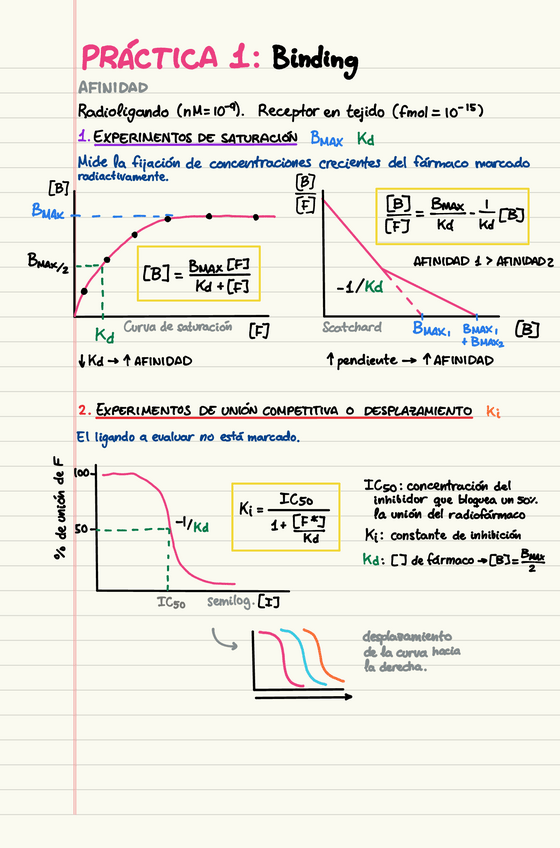 PRÁCTICA 1: Binding
AFINIDAD
Radioligando (nM=10⁻⁹). Receptor en tejido (fmol = 10⁻¹⁵)
1. EXPERIMENTOS DE SATURACIÓN BMAX Kd
Mide la fijación de concentraciones crecientes del fármaco marcado
radiactivamente.
[B]
BMAX
BMAX/2
[B] = BMAX [F] / Kd + [F]
Kd
Curva de saturación
[F]
↓Kd → ↑ AFINIDAD
[B]
[F]
[B]/[F] = BMAX/Kd - 1/Kd [B]
AFINIDAD 1 > AFINIDAD2
-1/Kd
Scatchard
BMAX₁
BMAX₁
+ BMAX₂
[B]
↑ pendiente → ↑ AFINIDAD
2. EXPERIMENTOS DE UNIÓN COMPETITIVA O DESPLAZAMIENTO Ki
El ligando a evaluar no está marcado.
% de unión de F
100
50
-1/Kd
IC50
semilog. [I]
Ki = IC50 / 1 + [F*]/Kd
IC50: concentración del
inhibidor que bloquea un 50%
la unión del radiofármaco
Ki: constante de inhibición
Kd: [] de fármaco → [B] = BMAX/2
desplazamiento
de la curva hacia
la derecha.